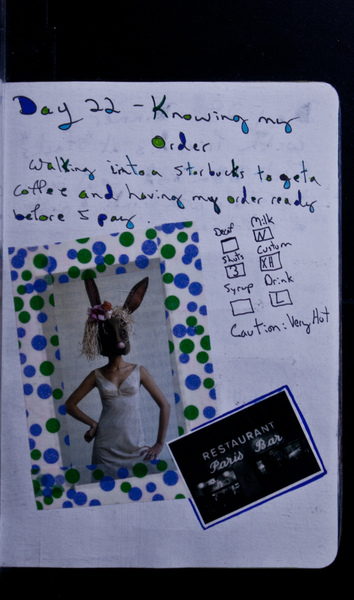 Day 22 - Knowing my
Order
Walking into a Starbucks to get a
coffee and having my order ready
before I pay.
Decaf
Milk
N
Shots
3
Custom
XH
Syrup
Drink
L
Caution: Very Hot
RESTAURANT
Paris Bar